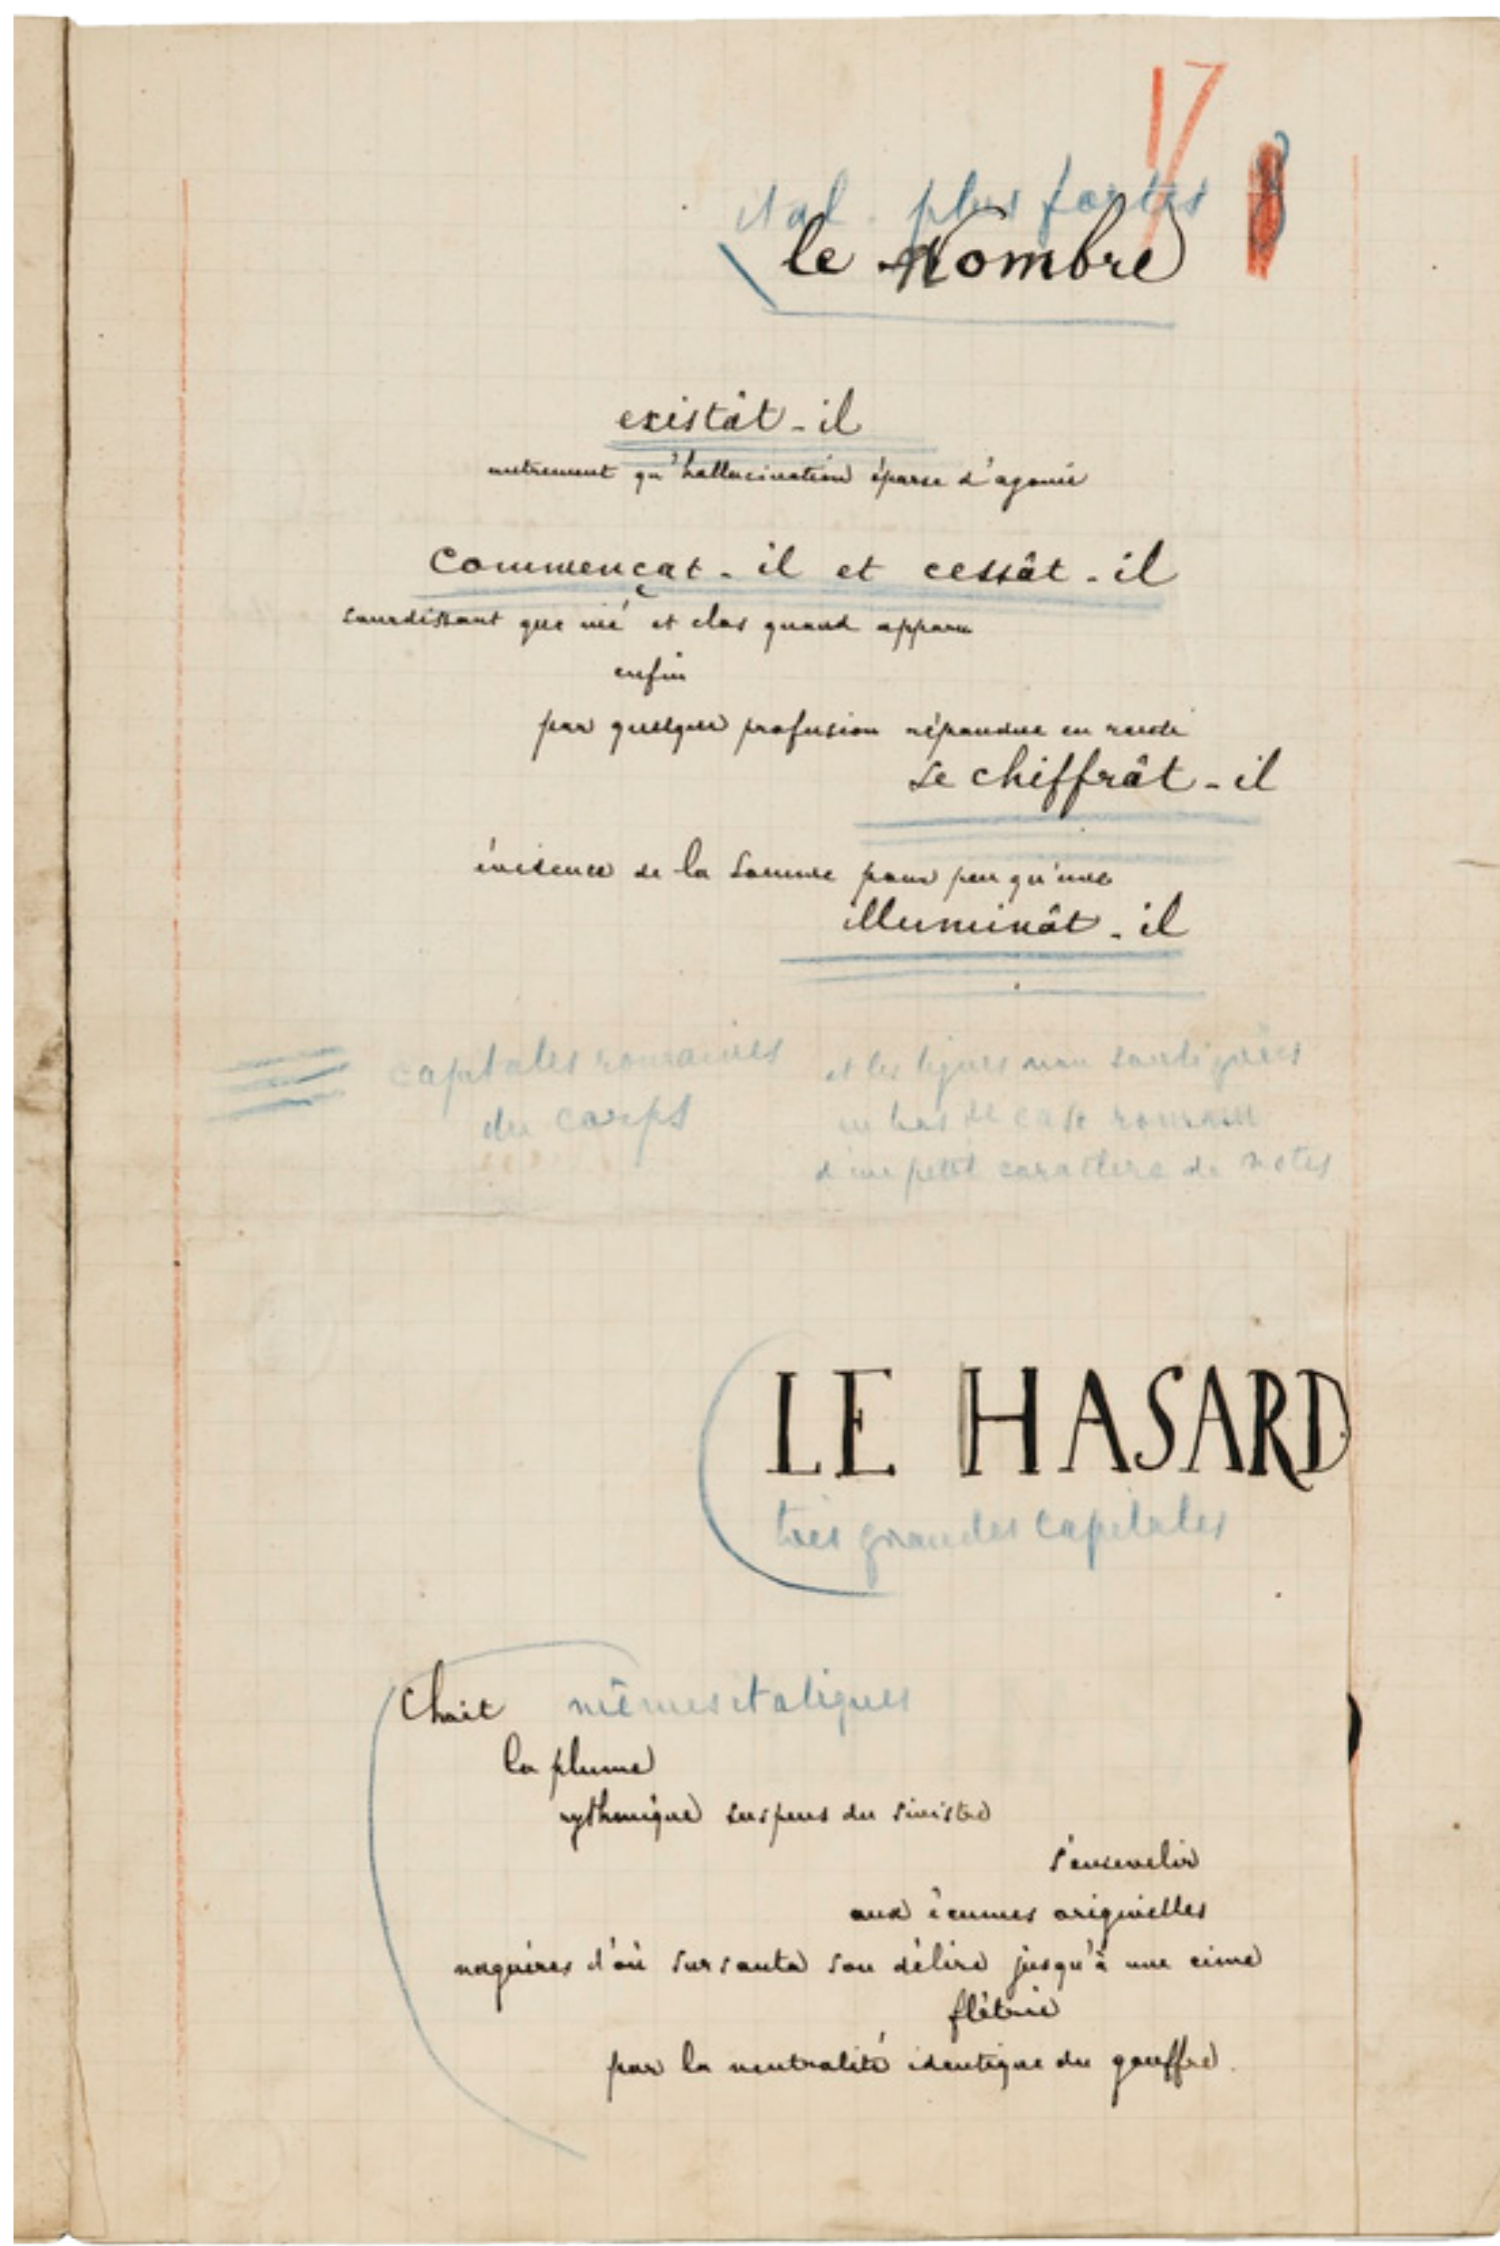 17
ital. plus fortes
8
le Nombre
existât-il
autrement qu'hallucination éparse d'agonie
commençât-il et cessât-il
sourdissant que nié et clos quand apparu
enfin
par quelque profusion répandue en rareté
se chiffrât-il
évidence de la somme pour peu qu'une
illuminât-il
capitales romaines et les lignes non soulignées
du corps en bas de casse romain
d'un petit caractère de notes
LE HASARD
très grandes capitales
Choit mêmes italiques
la plume
rythmique suspens du sinistre
s'ensevelir
aux écumes originelles
naguères d'où sursauta son délire jusqu'à une cime
flétrie
par la neutralité identique du gouffre.